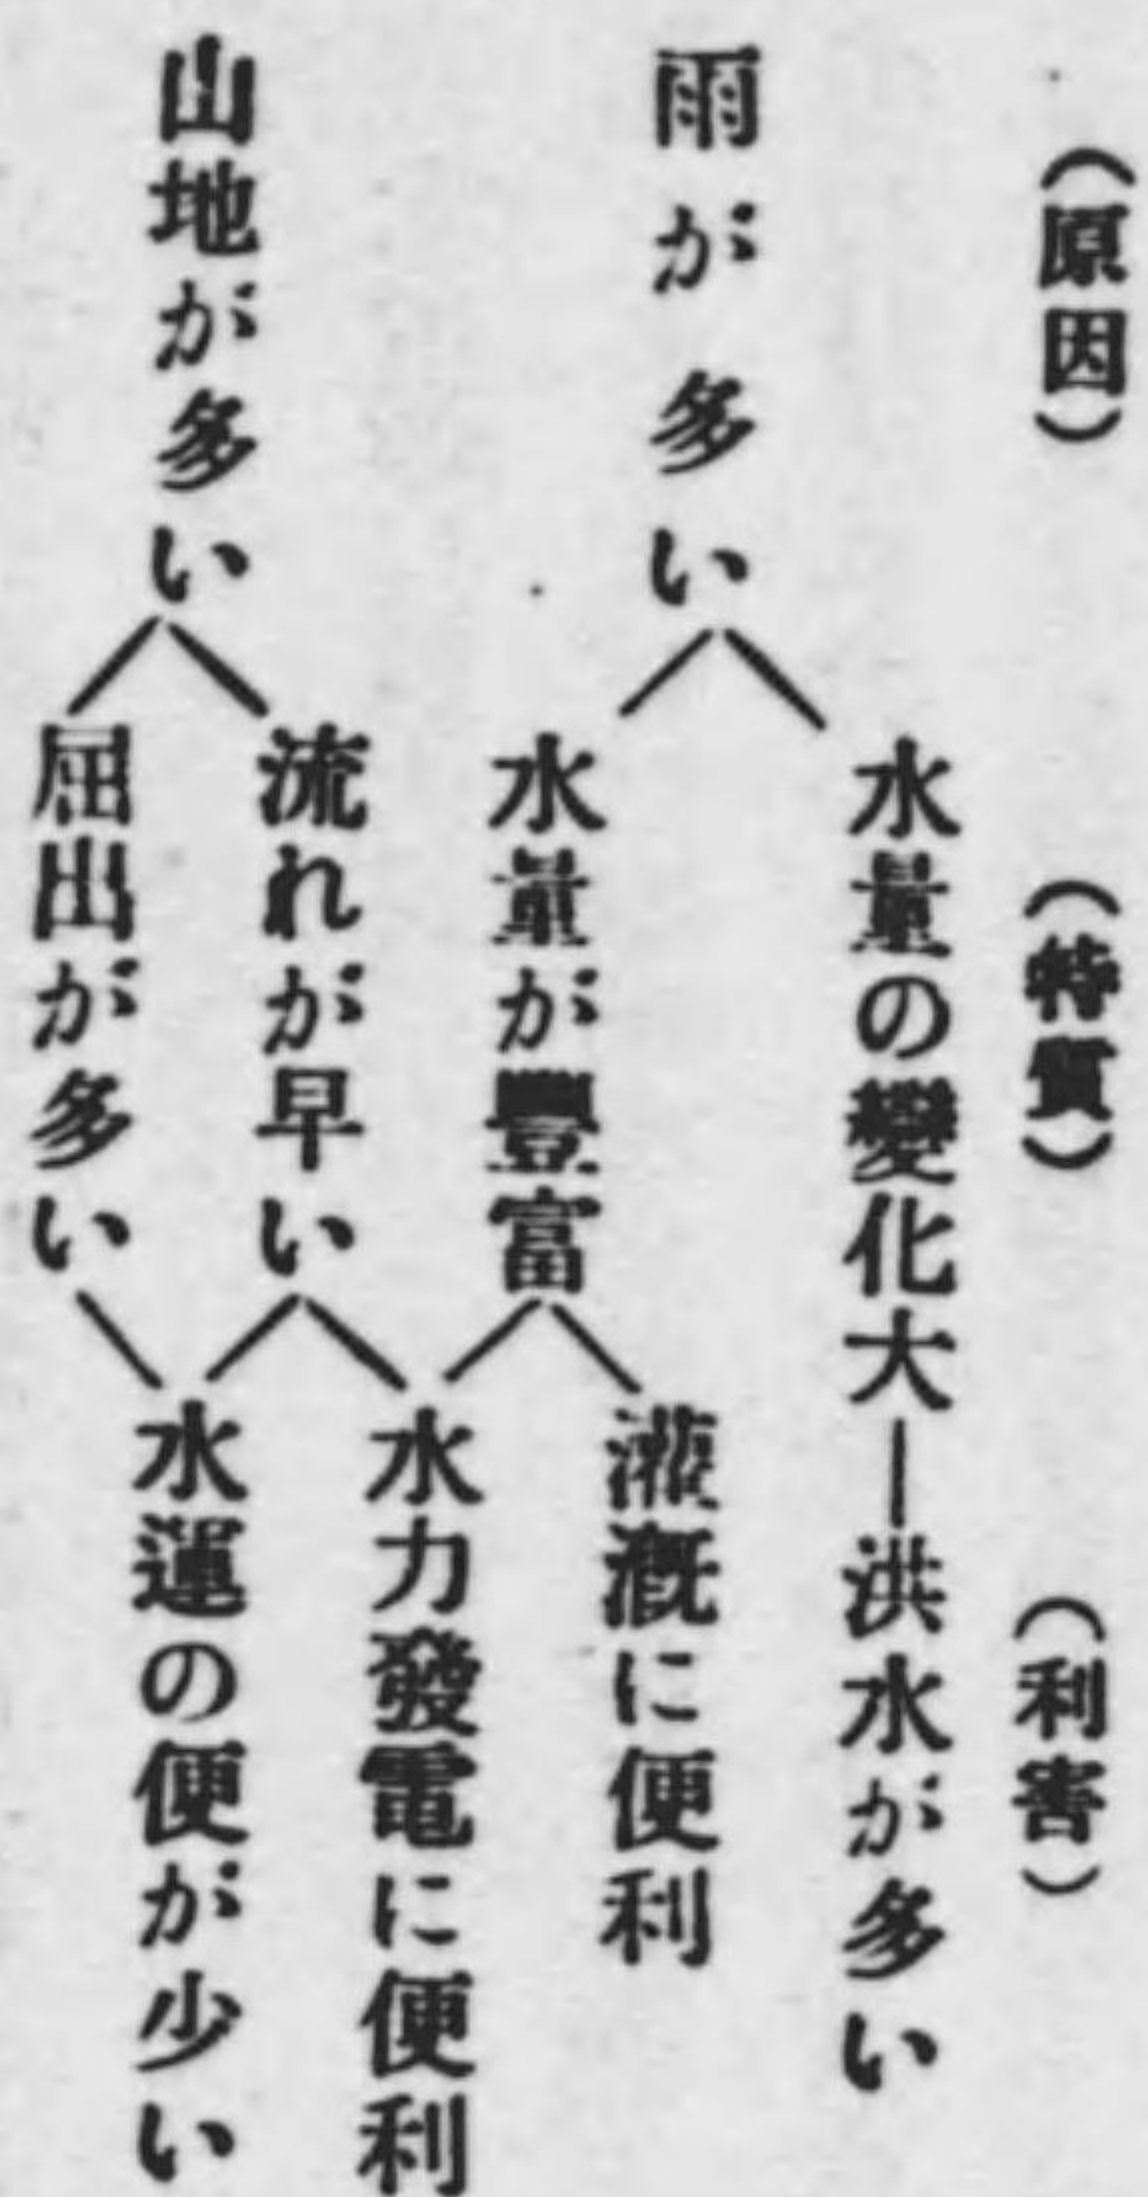 （原因）
（特質）
（利害）
雨が多い
水量の變化大
洪水が多い
水量が豐富
灌漑に便利
水力發電に便利
山地が多い
流れが早い
屈出が多い
水運の便が少い